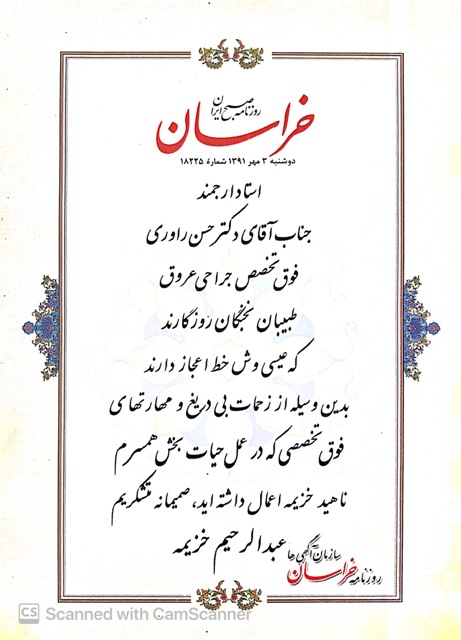 روزنامه صبح ایران
خراسان
دوشنبه ۳ مهر ۱۳۹۱ شماره ۱۸۲۲۵
استاد ارجمند
جناب آقای دکتر حسن راوری
فوق تخصص جراحی عروق
طبیبان نخبگان روزگارند
که عیسی وش خط اعجاز دارند
بدین وسیله از زحمات بی دریغ و مهارتهای
فوق تخصصی که در عمل حیات بخش همسرم
ناهید خزیمه اعمال داشته اید، صمیمانه متشکریم
عبدالرحیم خزیمه
سازمان آگهی ها
روزنامه خراسان
CS Scanned with CamScanner